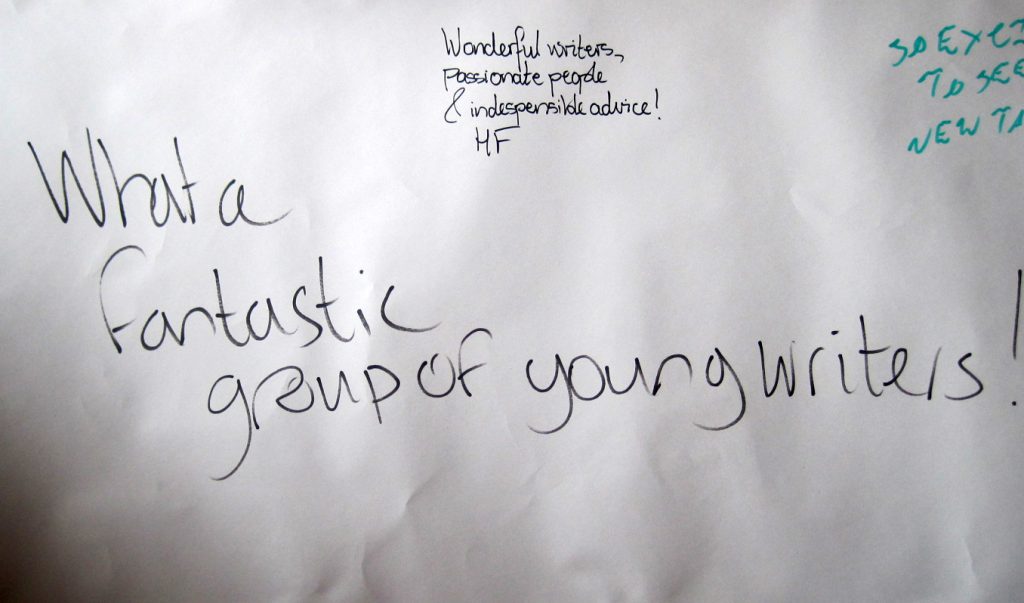 Wonderful writers,
passionate people
& indespensible advice!
HF
SO EXCI
TO SEE
NEW TA
What a
fantastic
group of young writers!